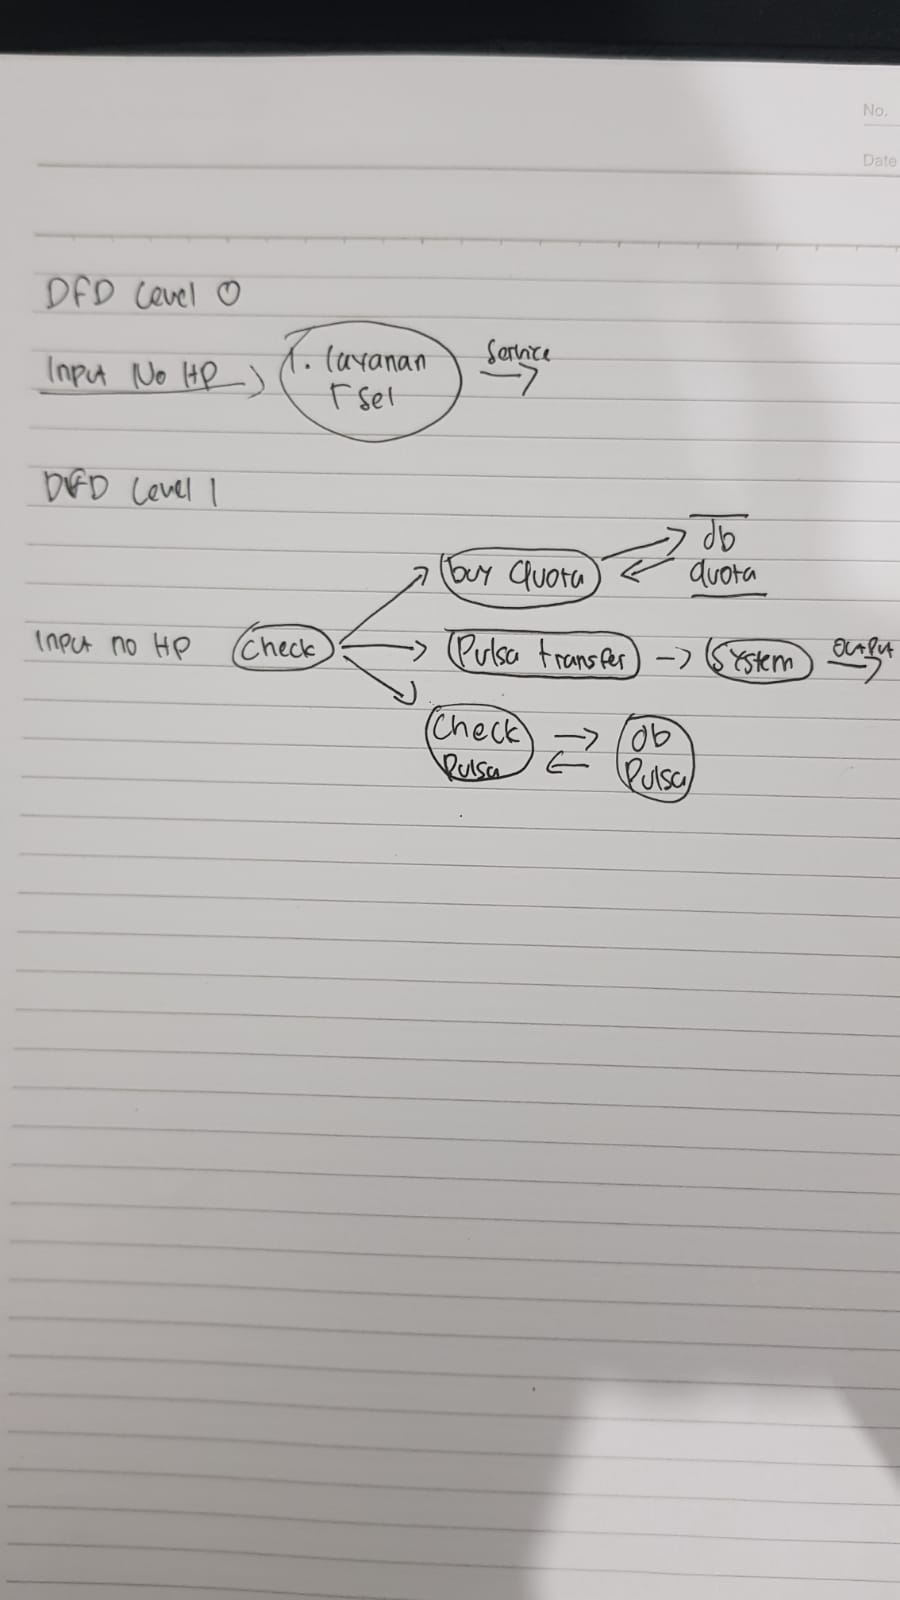 No.
Date
DFD Level 0
Input No HP
1. layanan
Tsel
Service
DFD Level 1
Input no HP
Check
buy Quota
db
quota
Pulsa transfer
System
Output
Check
Pulsa
db
Pulsa